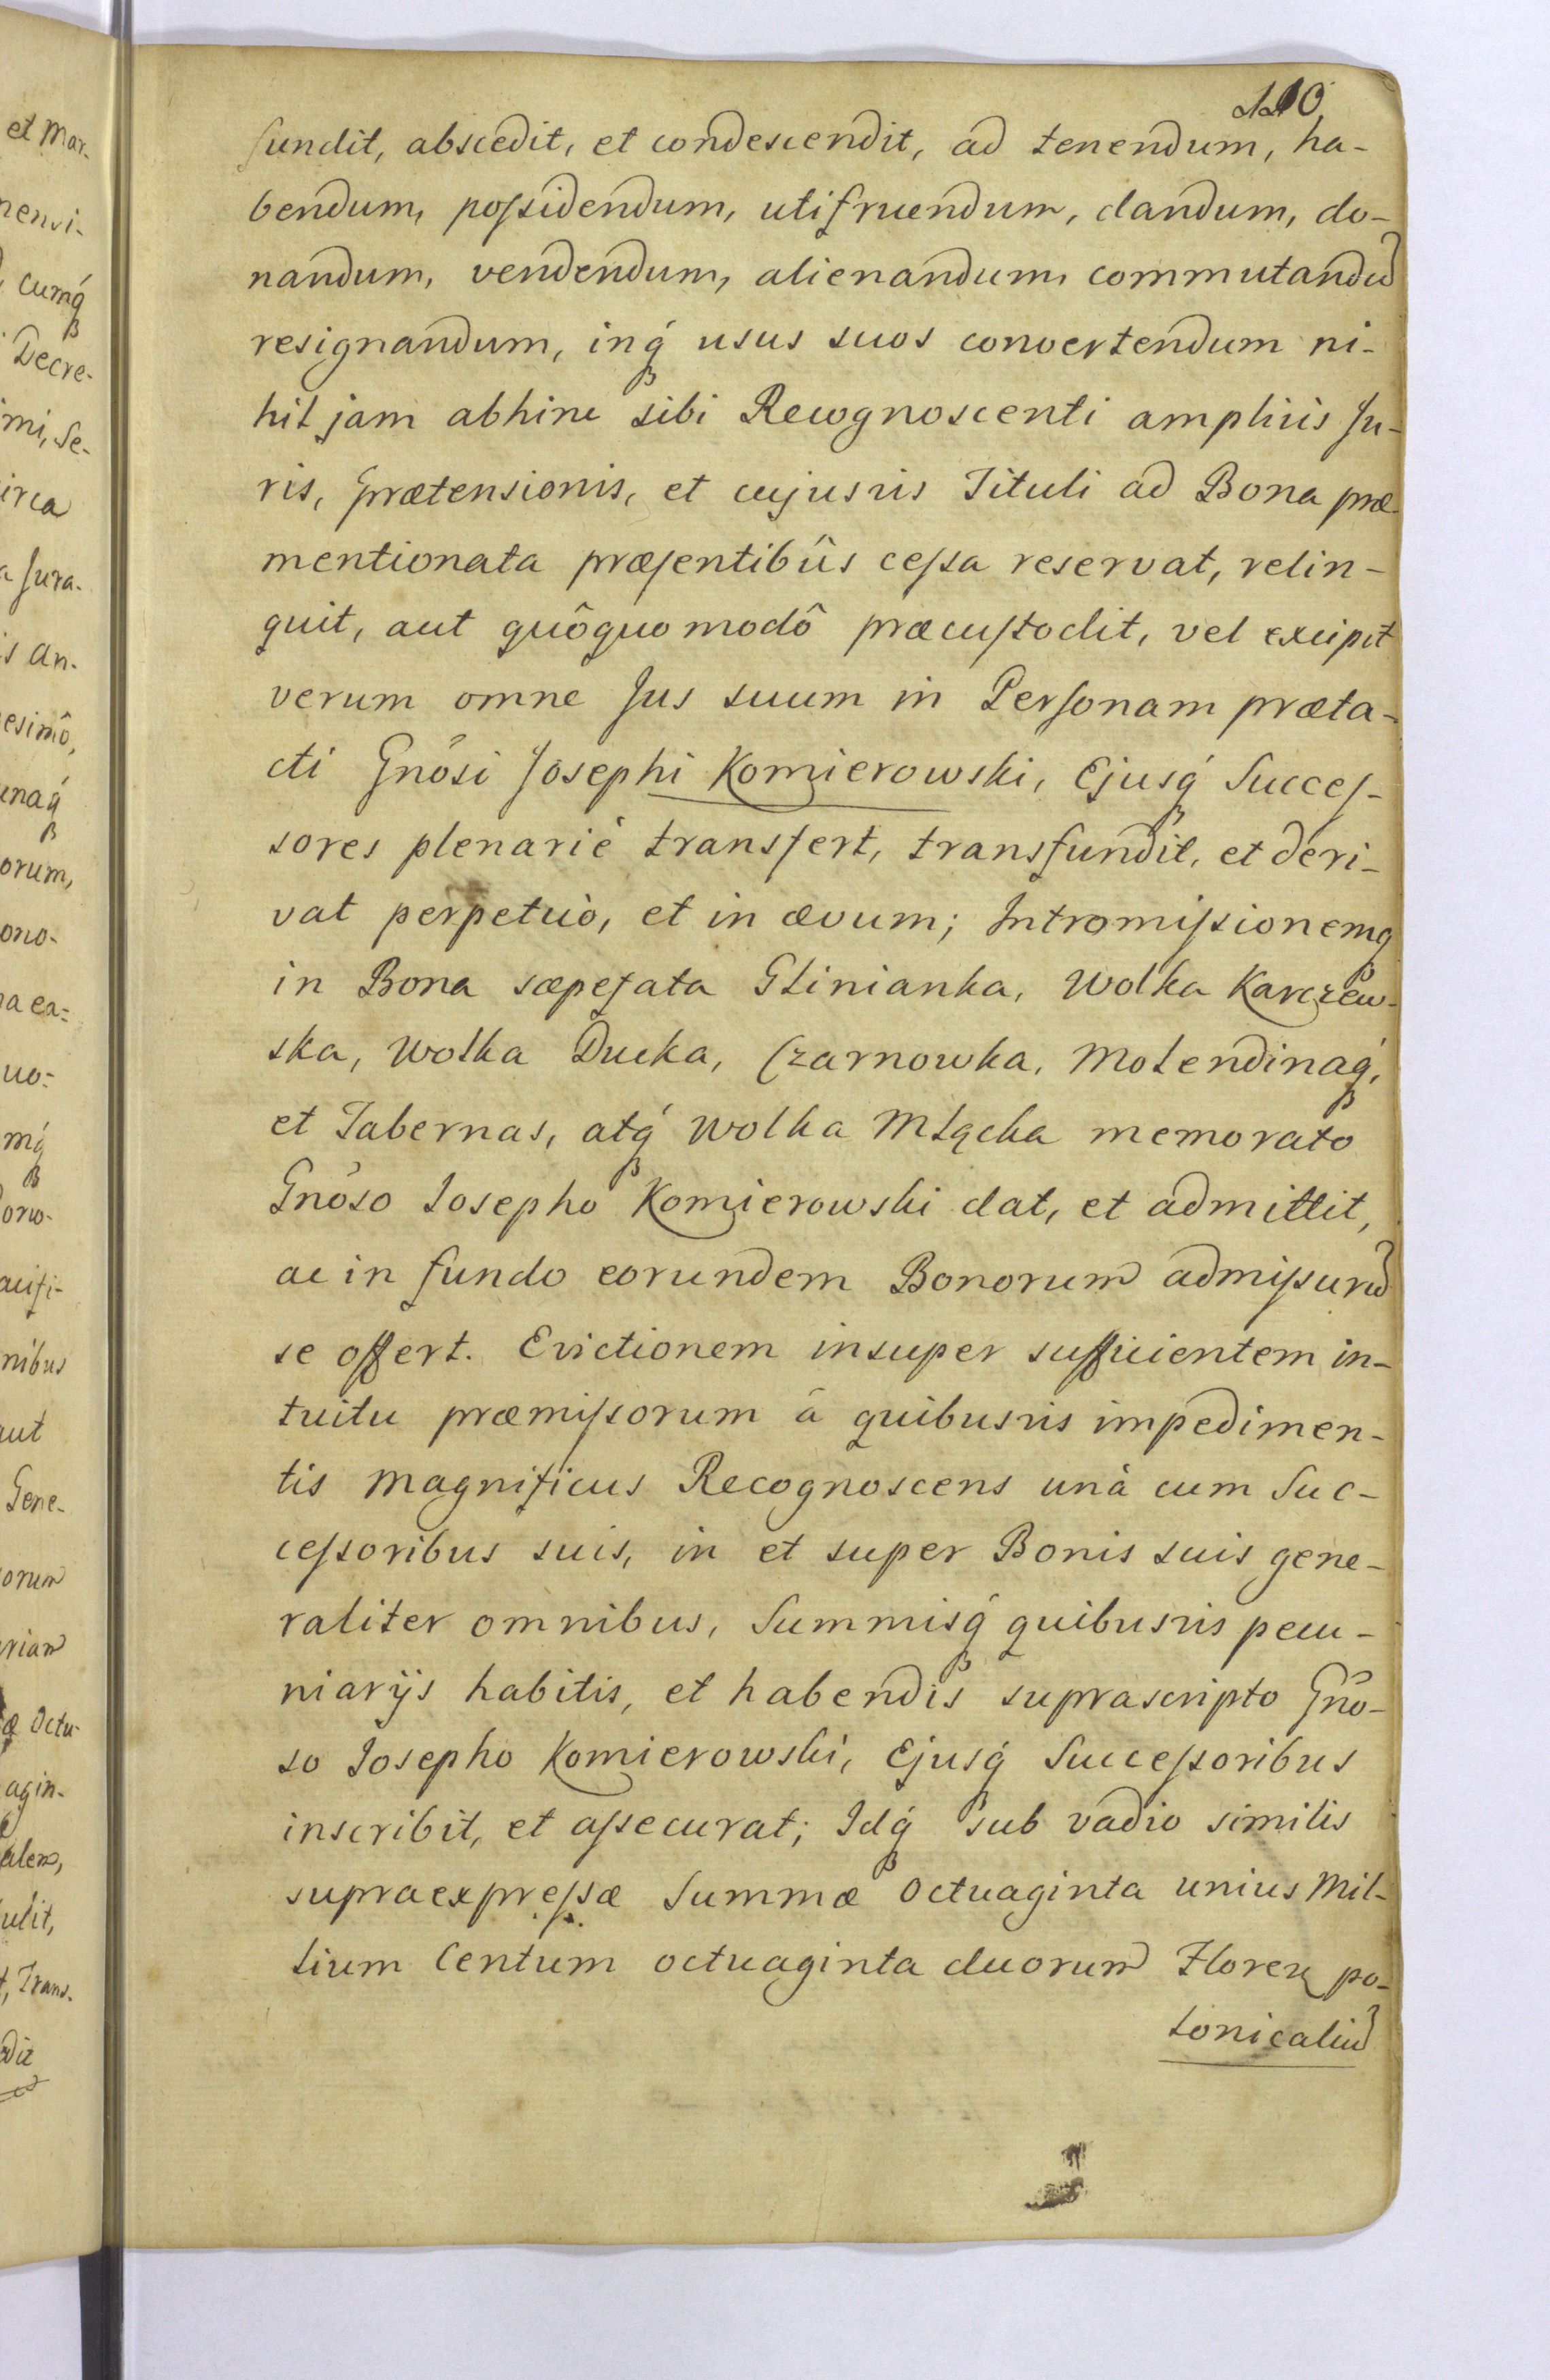 110
fundit, abscedit, et condescendit, ad tenendum, ha-
bendum, possidendum, utifruendum, dandum, do-
nandum, vendendum, alienandum, commutandu
resignandum, inq́ usus suos convertendum ni-
hil jam abhinc sibi Recognoscenti ampliùs Ju-
ris, Prætensionis, et cujusvis Tituli ad Bona præ-
mentionata præsentibûs cessa reservat, relin-
quit, aut quôquo modô præcustodit, vel excipit
verum omne Jus suum in Personam præta-
cti Gnosi Josephi Komierowski, Ejusq́ Succes-
sores plenariè transfert, transfundit, et deri-
vat perpetuò, et in ævum; Intromissionemq
in Bona sæpefata Glinianka, Wolka Karczew-
ska, Wolka Ducka, Czarnowka, Molendinaq́,
et Tabernas, atq́ Wolka Mlącka memorato
Gnoso Josepho Komierowski dat, et admittit,
ac in fundo eorundem Bonorum admissuru
se offert. Evictionem insuper sufficientem in-
tuitu præmissorum à quibusvis impedimen-
tis Magnificus Recognoscens unà cum Suc-
cessoribus suis, in et super Bonis suis gene-
raliter omnibus, Summisq́ quibusvis pecu-
niarijs habitis, et habendis suprascripto Gno-
so Josepho Komierowski, Ejusq́ Successoribus
inscribit, et assecurat; Idq́ sub vadio similis
supraexpressæ Summæ Octuaginta unius Mil-
lium Centum octuaginta duorum Floren po-
lonicaliu
et Mar-
cumq́
Decre-
imi, Se-
irca
Jura-
is An-
esimô,
unaq́
orum,
ono-
a ea=
uo=
mq́
ono-
nibus
aut
Gene-
orum
riam
æ Octu-
agin-
alem,
ulit,
t, Trans-